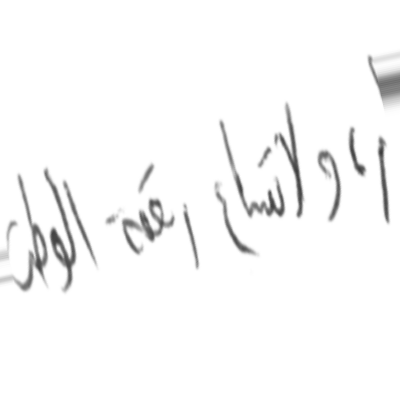 و لاتساع رقعة الوطن